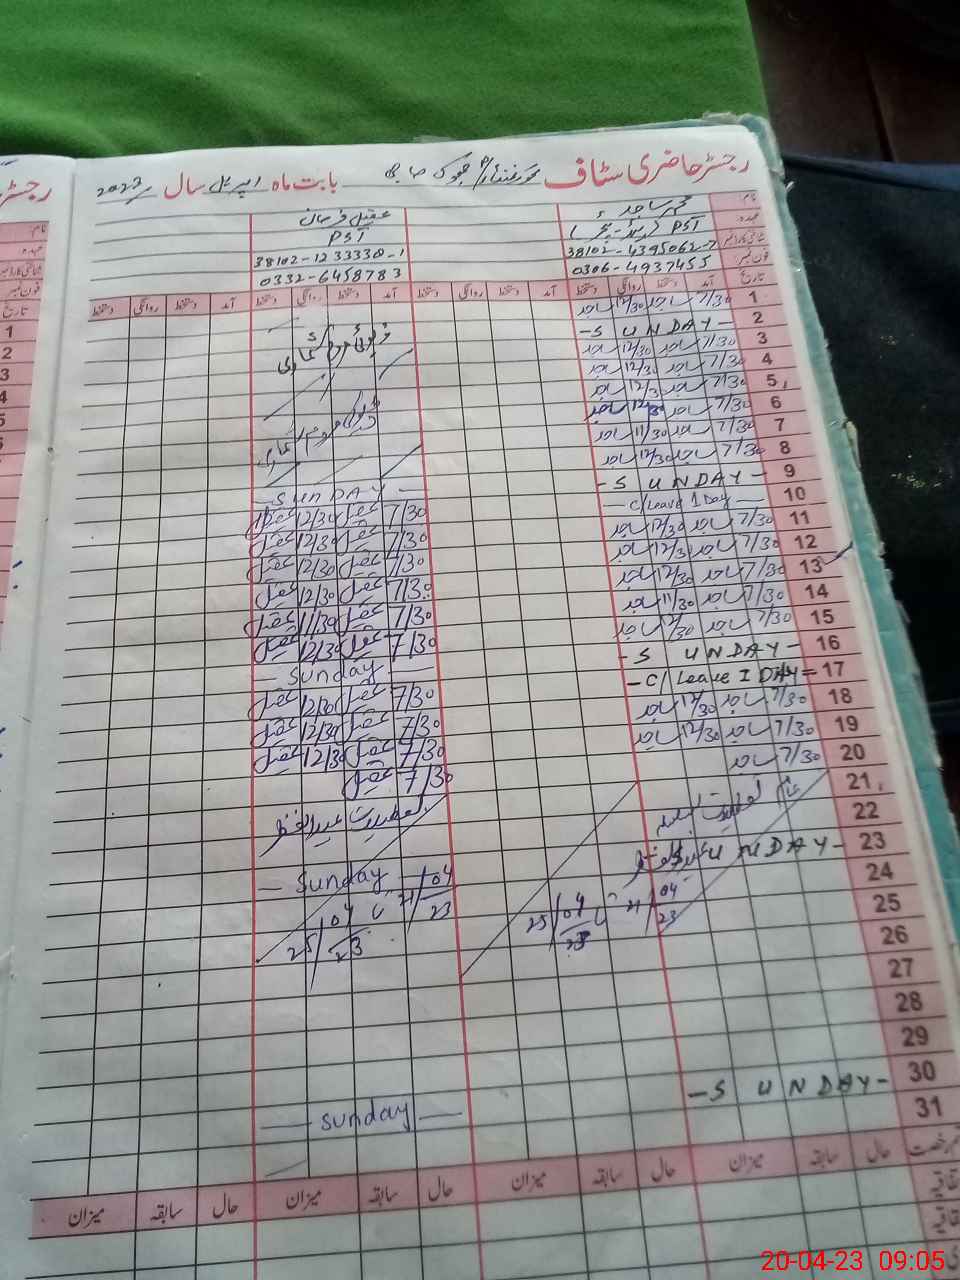 رجسٹر حاضری سٹاف
بابت ماہ اپریل سال 2023
نام
محمد ساجد
عقیل فرحان
عہدہ
PST
PST
شناختی کارڈ نمبر
38102-4395062-7
38102-1233338-1
فون نمبر
0306-4937455
0332-6458783
تاریخ آمد دستخط روانگی دستخط آمد دستخط روانگی دستخط آمد دستخط روانگی دستخط آمد دستخط روانگی دستخط
1 7/30 ساجد 12/30 ساجد
2 -SUNDAY-
3 7/30 ساجد 12/30 ساجد
4 7/30 ساجد 12/30 ساجد
5 7/30 ساجد 12/3 ساجد
6 7/30 ساجد 12/30 ساجد
7 7/30 ساجد 11/30 ساجد
8 7/30 ساجد 12/30 ساجد
9 -SUNDAY- — SUNDAY —
10 — C/Leave 1 Day — 7/30 عقیل 12/30 عقیل
11 7/30 ساجد 12/30 ساجد 7/30 عقیل 12/30 عقیل
12 7/30 ساجد 12/3 ساجد 7/30 عقیل 12/30 عقیل
13 7/30 ساجد 12/30 ساجد 7/30 عقیل 12/30 عقیل
14 7/30 ساجد 11/30 ساجد 7/30 عقیل 11/30 عقیل
15 7/30 ساجد 12/30 ساجد 7/30 عقیل 12/30 عقیل
16 -SUNDAY- — Sunday —
17 -C/Leave 1 DAY= 7/30 عقیل 12/30 عقیل
18 7/30 ساجد 12/30 ساجد 7/30 عقیل 12/30 عقیل
19 7/30 ساجد 12/30 ساجد 7/30 عقیل 12/30 عقیل
20 7/30 ساجد 7/30 عقیل
21
تعطیلات عید الفطر
22
تعطیلات عید الفطر
23 SUNDAY- — Sunday —
24
21/04/23 تا 25/04/23
21/04/23 تا 25/04/23
25
26
27
28
29
30 -SUNDAY- — Sunday —
31
حال سابقہ میزان حال سابقہ میزان حال سابقہ میزان حال سابقہ میزان
رجسٹر
نام
عہدہ
فون نمبر
تاریخ
1
2
3
4
4
5
6
20-04-23 09:05